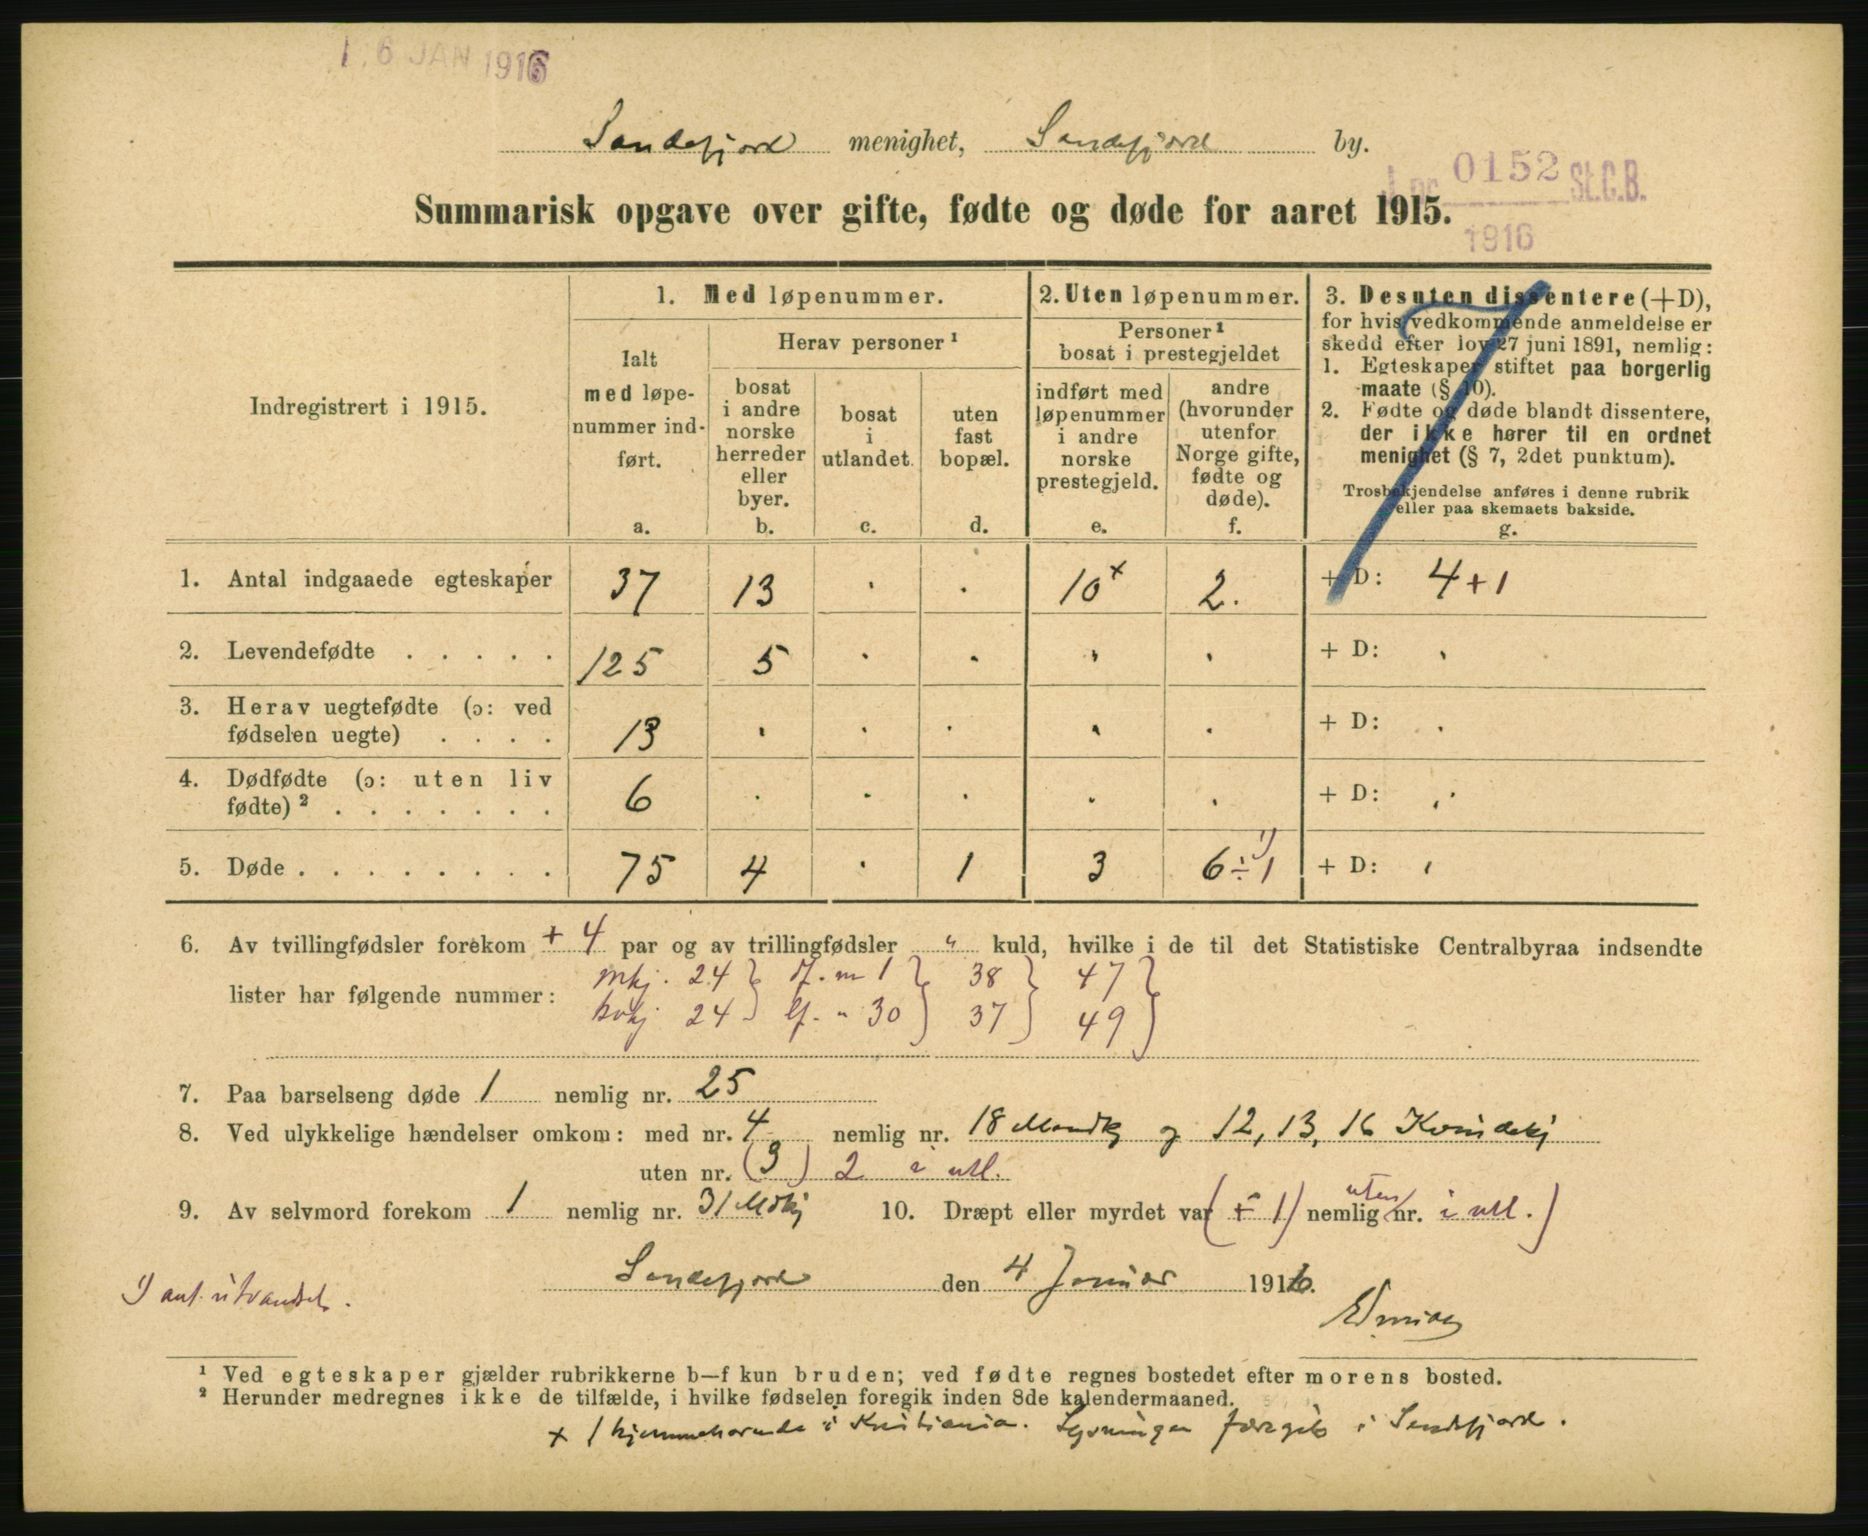 16 JAN 1916
Sandefjord menighet, Sandefjord by.
J. nr. 0152 St.C.B.
1916
Summarisk opgave over gifte, fødte og døde for aaret 1915.
Indregistrert i 1915.
1. Med løpenummer.
Ialt med løpe-
nummer ind-
ført.
a.
Herav personer ¹
bosat
i andre
norske
herreder
eller
byer.
b.
bosat
i
utlandet.
c.
uten
fast
bopæl.
d.
2. Uten løpenummer.
Personer ¹
bosat i prestegjeldet
indført med
løpenummer
i andre
norske
prestegjeld.
e.
andre
(hvorunder
utenfor
Norge gifte,
fødte og
døde).
f.
3. Desuten dissentere (+D),
for hvis vedkommende anmeldelse er
skedd efter lov 27 juni 1891, nemlig:
1. Egteskaper stiftet paa borgerlig
maate (§ 10).
2. Fødte og døde blandt dissentere,
der ikke hører til en ordnet
menighet (§ 7, 2det punktum).
Trosbekjendelse anføres i denne rubrik
eller paa skemaets bakside.
g.
1. Antal indgaaede egteskaper 37 13 . . 10 x 2. + D: 4 + 1
2. Levendefødte . . . . . 125 5 . . . . + D: .
3. Herav uegtefødte (ɔ: ved
fødselen uegte) . . . . 13 . . . . . + D: .
4. Dødfødte (ɔ: uten liv
fødte) ² . . . . . . . 6 . . . . . + D: .
5. Døde . . . . . . . . 75 4 . 1 3 6 ÷ 1 ¹) + D: .
6. Av tvillingfødsler forekom + 4 par og av trillingfødsler " kuld, hvilke i de til det Statistiske Centralbyraa indsendte
lister har følgende nummer: Mkj. 24 } 1 } 38 } 47 }
Kvkj. 24 } 30 } 37 } 49 }
7. Paa barselseng døde 1 nemlig nr. 25
8. Ved ulykkelige hændelser omkom: med nr. 4 nemlig nr. 18 Mandkj og 12, 13, 16 Kvindekj
uten nr. (3) 2 i utl.
9. Av selvmord forekom 1 nemlig nr. 31 Mdkj 10. Dræpt eller myrdet var (÷ 1) nemlig uten nr. i utl.)
Sandefjord den 4 Januar 1916.
¹) ant. utvandset.
¹ Ved egteskaper gjælder rubrikkerne b—f kun bruden; ved fødte regnes bostedet efter morens bosted.
² Herunder medregnes ikke de tilfælde, i hvilke fødselen foregik inden 8de kalendermaaned.
x 1 hjemmehørende i Kristiania. Lysningen foregik i Sandefjord.